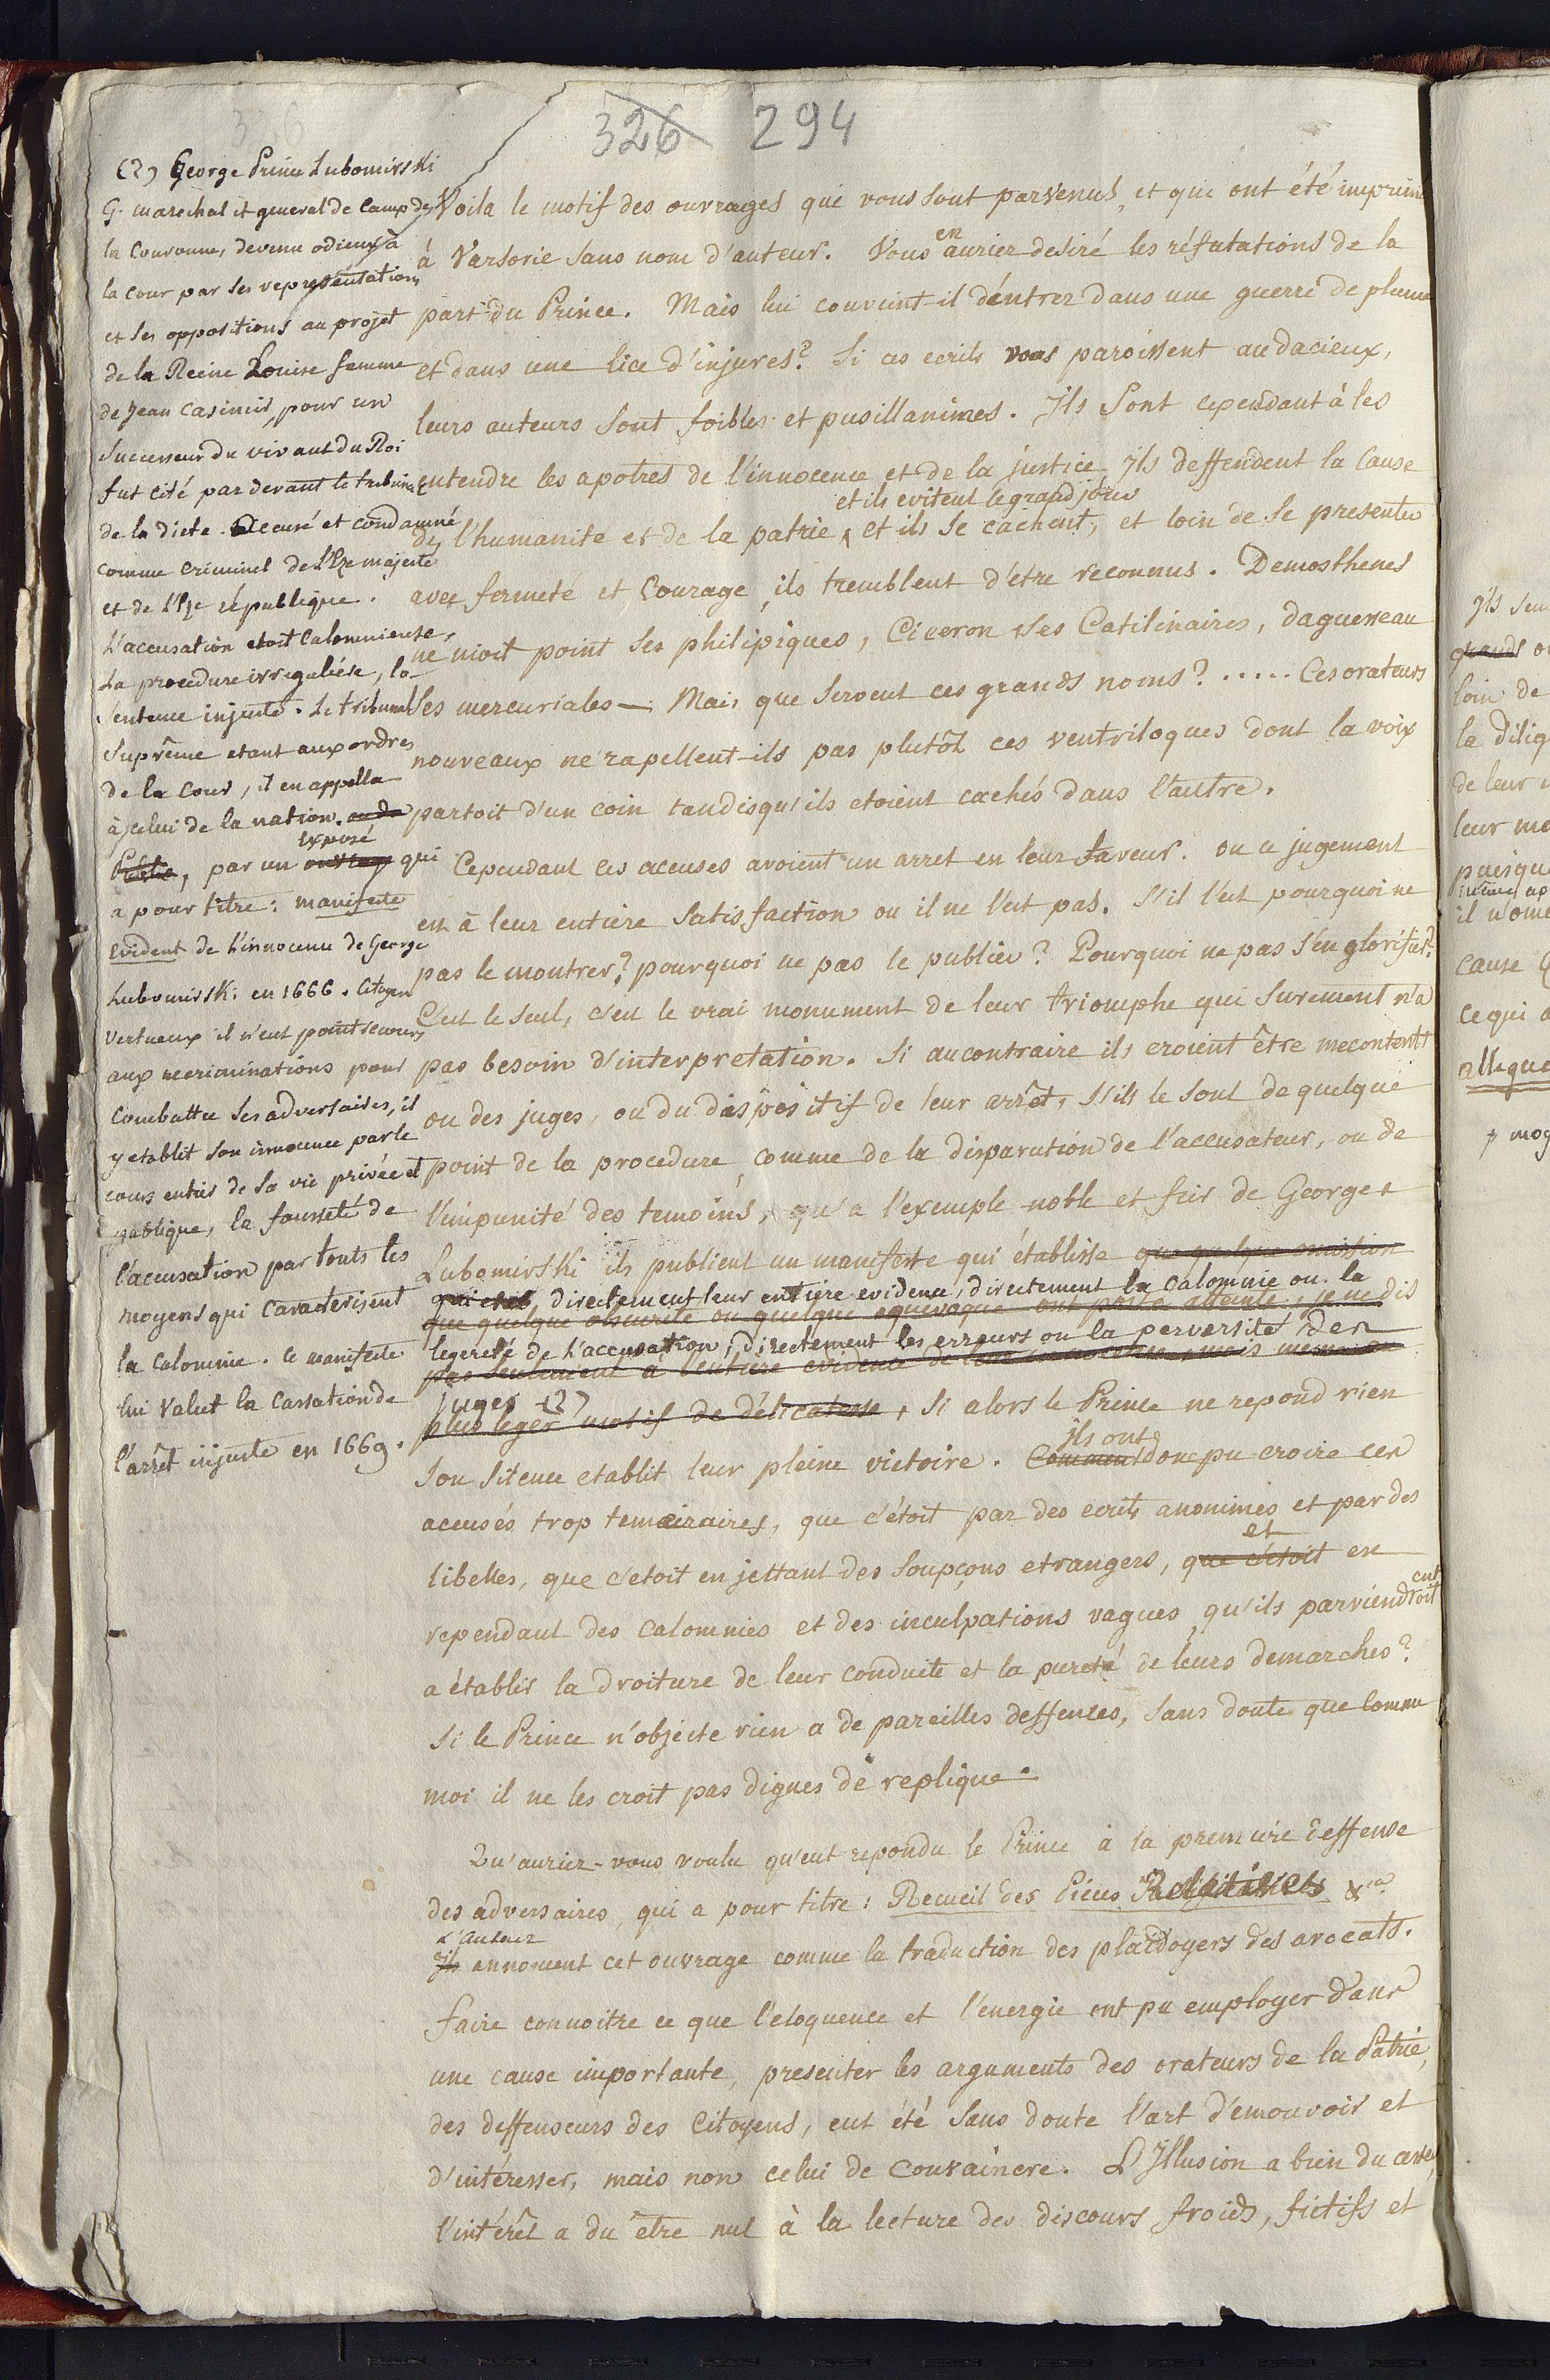 326 294
(2) George Prince Lubomirski
G. marechal et general de camp de
la Couronne, devenu odieux à
la cour par ses representations
et ses oppositions au projet
de la Reine Louise femme
de Jean Casimir, pour un
Successeur du vivant du Roi
fut cité par devant le tribunal
de la diete. Accusé et condamné
comme criminel de l'Eze majesté
et de l'Eze république.
L'accusation etoit Calomnieuse,
La procedure irreguliére, la
Sentence injuste. Le tribunal
Suprême etant aux ordres
de la Cour, il en appella
à celui de la nation,
par un exposé qui
a pour titre: manifeste
Evident de l'innocence de George
Lubomirski en 1666. Citoyen
Vertueux il n'eut point recours
aux recriminations pour
Combattre ses adversaires, il
y etablit son innocence par le
cours entier de sa vie privée et
publique, la fausseté de
l'accusation par touts les
moyens qui Caracterisent
la Calomnie. Ce manifeste
lui valut la Cassation de
l'arrêt injuste en 1669.
Voila le motif des ouvrages qui vous sont parvenus, et qui ont été imprimé
à Varsovie sans nom d'auteur. Vous en auriez desiré les réfutations de la
part du Prince. Mais lui convient-il d'entrer dans une guerre de plume
et dans une lice d'injures? Si ces ecrits vous paroissent audacieux,
leurs auteurs sont foibles et pusillanimes. Ils sont cependant à les
entendre les apotres de l'innocence et de la justice, ils deffendent la Cause
et ils evitent le grand jour
de l'humanité et de la patrie, et ils se cachent, et loin de se presenter
avec fermeté et Courage, ils tremblent d'etre reconnus. Demosthenes
ne nioit point ses philipiques, Ciceron ses Catilinaires, daguesseau
Ses mercuriales — Mais que servent ces grands noms? ..... Ces orateurs
nouveaux ne rapellent-ils pas plutôt ces ventriloques dont la voix
partoit d'un coin tandisqu'ils etoient cachés dans l'autre.
Cependant ces accusés avoient un arret en leur faveur. ou ce jugement
est à leur entière Satisfaction ou il ne l'est pas. S'il l'est pourquoi ne
pas le montrer? pourquoi ne pas le publier? Pourquoi ne pas s'en glorifier?
C'est le seul, c'est le vrai monument de leur triomphe qui surement n'a
pas besoin d'interpretation. Si aucontraire ils croient être mecontents
ou des juges, ou du dispositif de leur arrêt, s'ils le sont de quelque
point de la procedure, comme de la disparution de l'accusateur, ou de
l'impunité des temoins, qu'a l'exemple noble et fier de George
Lubomirski ils publient un manifeste qui établisse que quelque omission
qui etab directement leur entière evidence, directement la Calomnie ou la
que quelque obscurité ou quelque equivoque ont porté atteinte, je ne dis
legereté de l'accusation, directement les erreurs ou la perversité des
pas seulement à l'entière evidence de leur innocence, mais meme au
juges (2)
plus leger motif de délicatesse, Si alors le Prince ne repond rien
Son silence etablit leur pleine victoire. Comment ils ont donc pu croire ces
accusés trop temeraires, que c'étoit par des ecrits anonimes et par des
libelles, que c'etoit en jettant des Soupçons etrangers, que c'étoit et en
rependant des Calomnies et des inculpations vagues, qu'ils parviendroient
a établir la droiture de leur conduite et la pureté de leurs demarches?
Si le Prince n'objecte rien a de pareilles deffences, sans doute que Comme
moi il ne les croit pas dignes de replique.
Qu'auriez-vous voulu qu'eut repondu le Prince à la premiere deffense
des adversaires, qui a pour titre: Recueil des Pieces Relatives &ca
L'auteur
Ils annoncent cet ouvrage comme la traduction des plaidoyers des avocats.
faire connoitre ce que l'eloquence et l'energie ont pu employer dans
une cause importante, presenter les arguments des orateurs de la Patrie,
des deffenseurs des Citoyens, eut été sans doute l'art d'emouvoir et
d'intéresser, mais non celui de Convaincre. L'Illusion a bien du cesser
l'intérêt a du être nul à la lecture des discours froids, fictifs et
grands
loin de
la
de leur
leur
puisque
cause
Ce qui
allegue